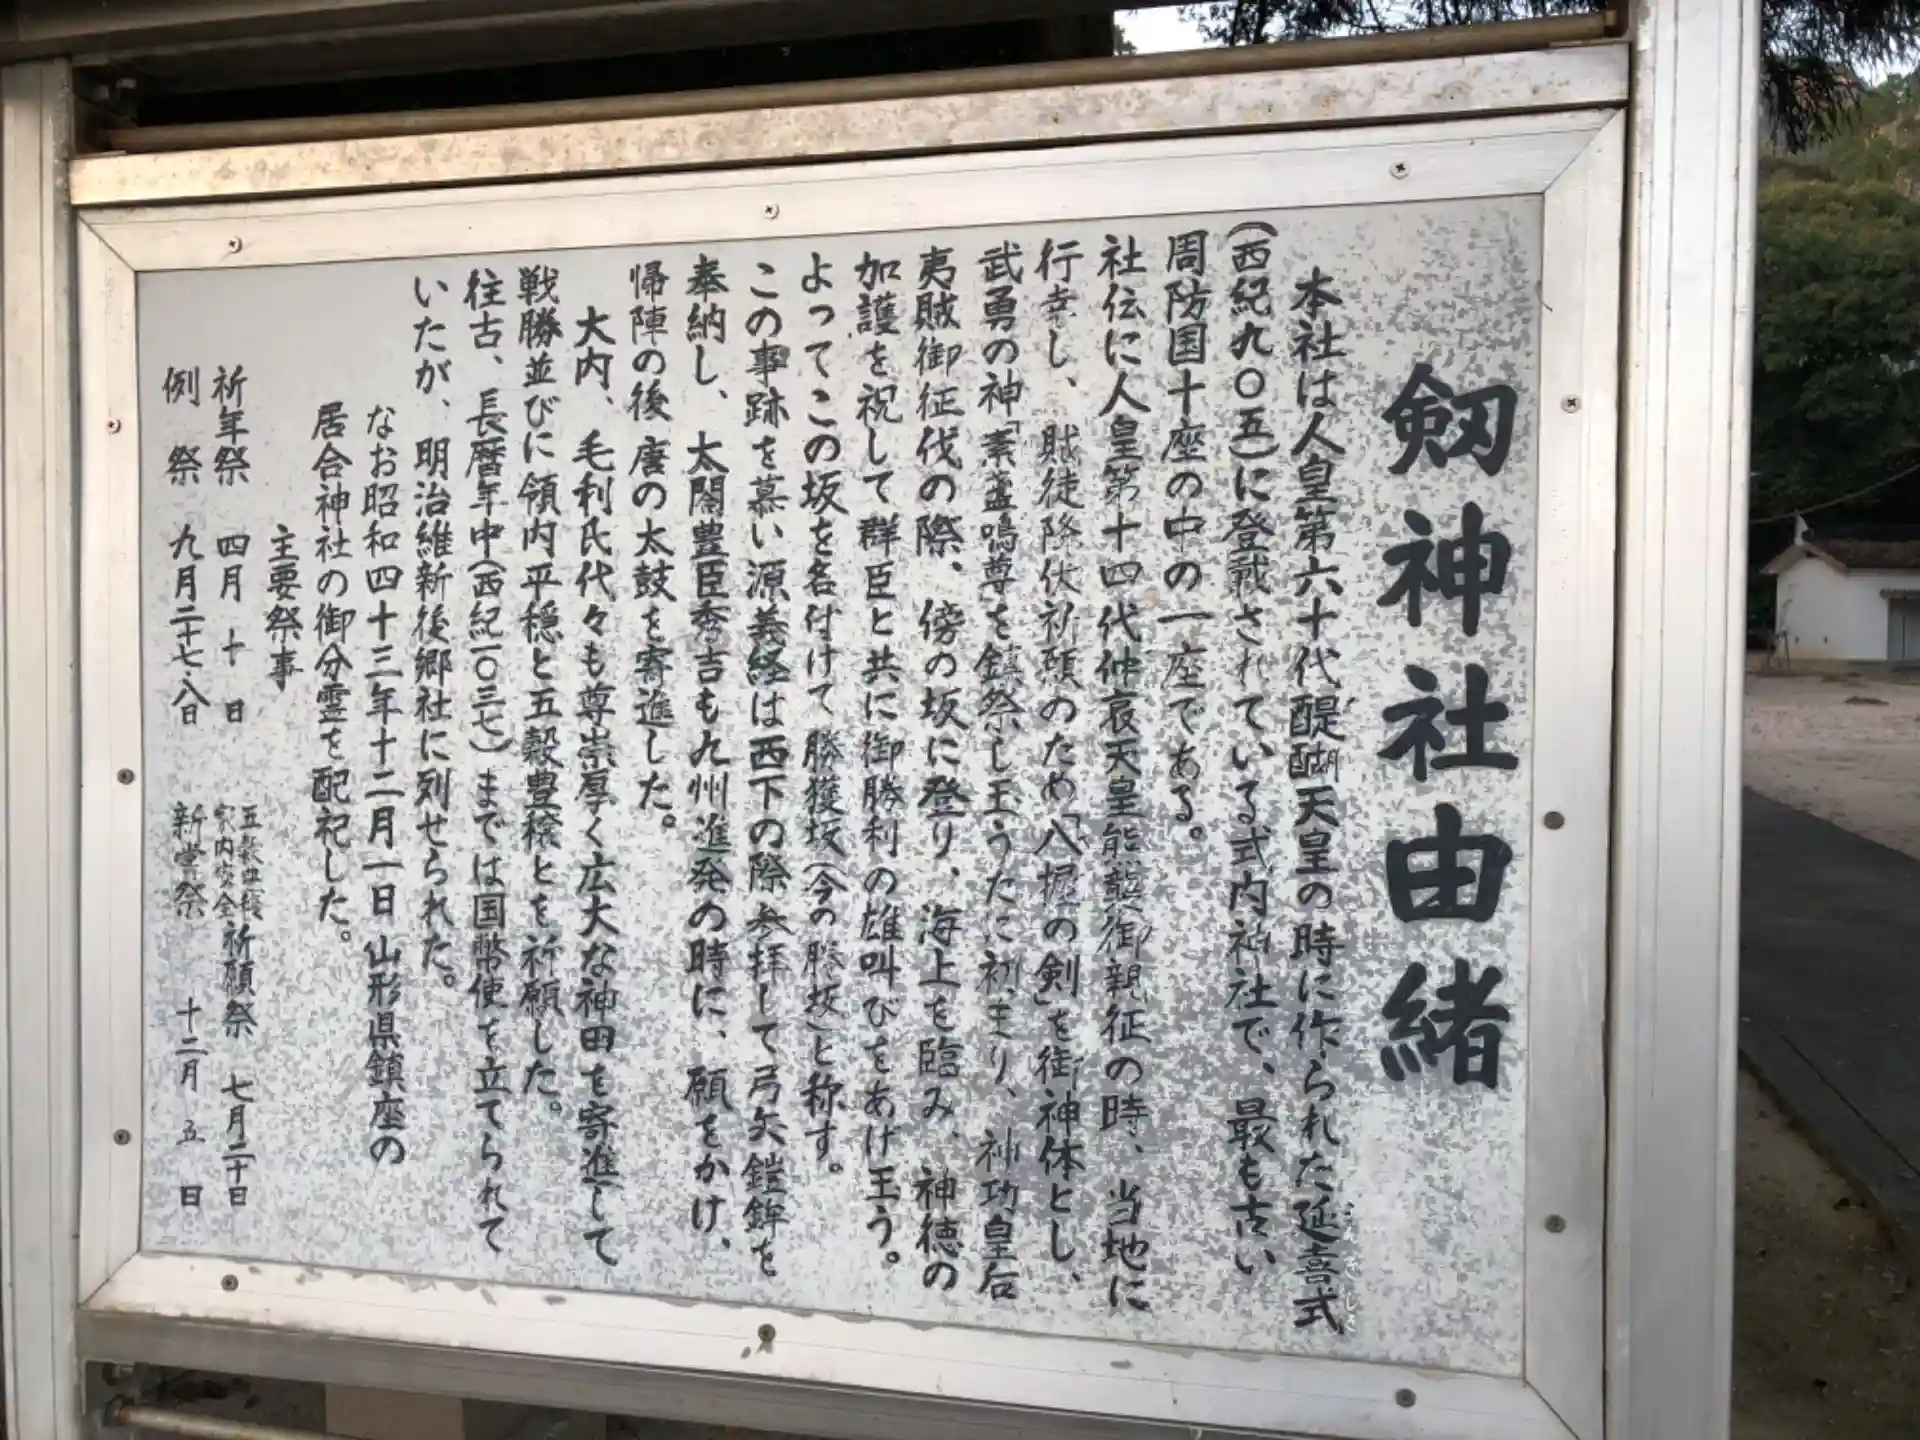 剱神社由緒
本社は人皇第六十代醍醐天皇の時に作られた延喜式
(西紀九〇五)に登載されている式内神社で、最も古い
周防国十座の中の一座である。
社伝に人皇第十四代仲哀天皇熊襲御親征の時、当地に
行幸し、賊徒降伏祈願のため「八握の剣」を御神体とし、
武勇の神「素盞鳴尊を鎮祭し玉うたに初まり、神功皇后
夷賊御征伐の際、傍の坂に登り、海上を臨み、神徳の
加護を祝して群臣と共に御勝利の雄叫びをあげ玉う。
よってこの坂を名付けて勝獲坂(今の勝坂)と称す。
この事跡を慕い源義経は西下の際参拝して弓矢鎧鉾を
奉納し、太閤豊臣秀吉も九州進発の時に、願をかけ、
帰陣の後唐の太鼓を寄進した。
大内、毛利氏代々も尊崇厚く広大な神田を寄進して
戦勝並びに領内平穏と五穀豊穣とを祈願した。
往古、長暦年中(西紀一〇三七)までは国幣使を立てられて
いたが、明治維新後郷社に列せられた。
なお昭和四十三年十二月一日山形県鎮座の
居合神社の御分霊を配祀した。
主要祭事
祈年祭 四月十日 五穀豊穣 家内安全 祈願祭 七月二十日
例祭 九月二十七・八日 新嘗祭 十二月五日